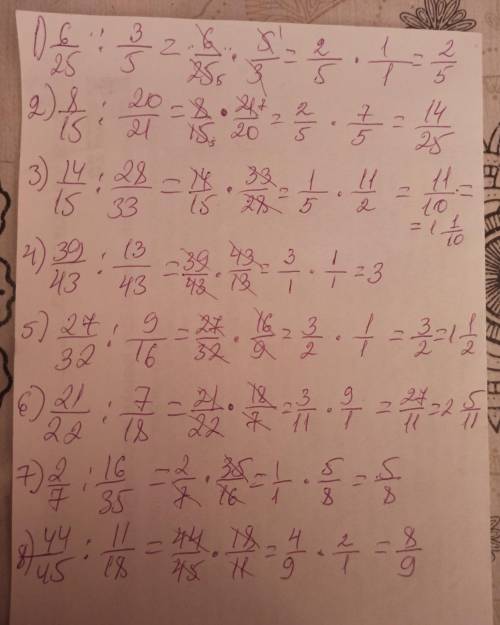 1) 6/25 : 3/5 = 6/25 5 · 5 1/3 = 2/5 · 1/1 = 2/5
2) 8/15 : 20/21 = 8/15 5 · 21 7/20 = 2/5 · 7/5 = 14/25
3) 14/15 : 28/33 = 14/15 · 33/28 = 1/5 · 11/2 = 11/10 =
= 1 1/10
4) 39/43 : 13/43 = 39/43 · 43/13 = 3/1 · 1/1 = 3
5) 27/32 : 9/16 = 27/32 · 16/9 = 3/2 · 1/1 = 3/2 = 1 1/2
6) 21/22 : 7/18 = 21/22 · 18/7 = 3/11 · 9/1 = 27/11 = 2 5/11
7) 2/7 : 16/35 = 2/7 · 35/16 = 1/1 · 5/8 = 5/8
8) 44/45 : 11/18 = 44/45 · 18/11 = 4/9 · 2/1 = 8/9